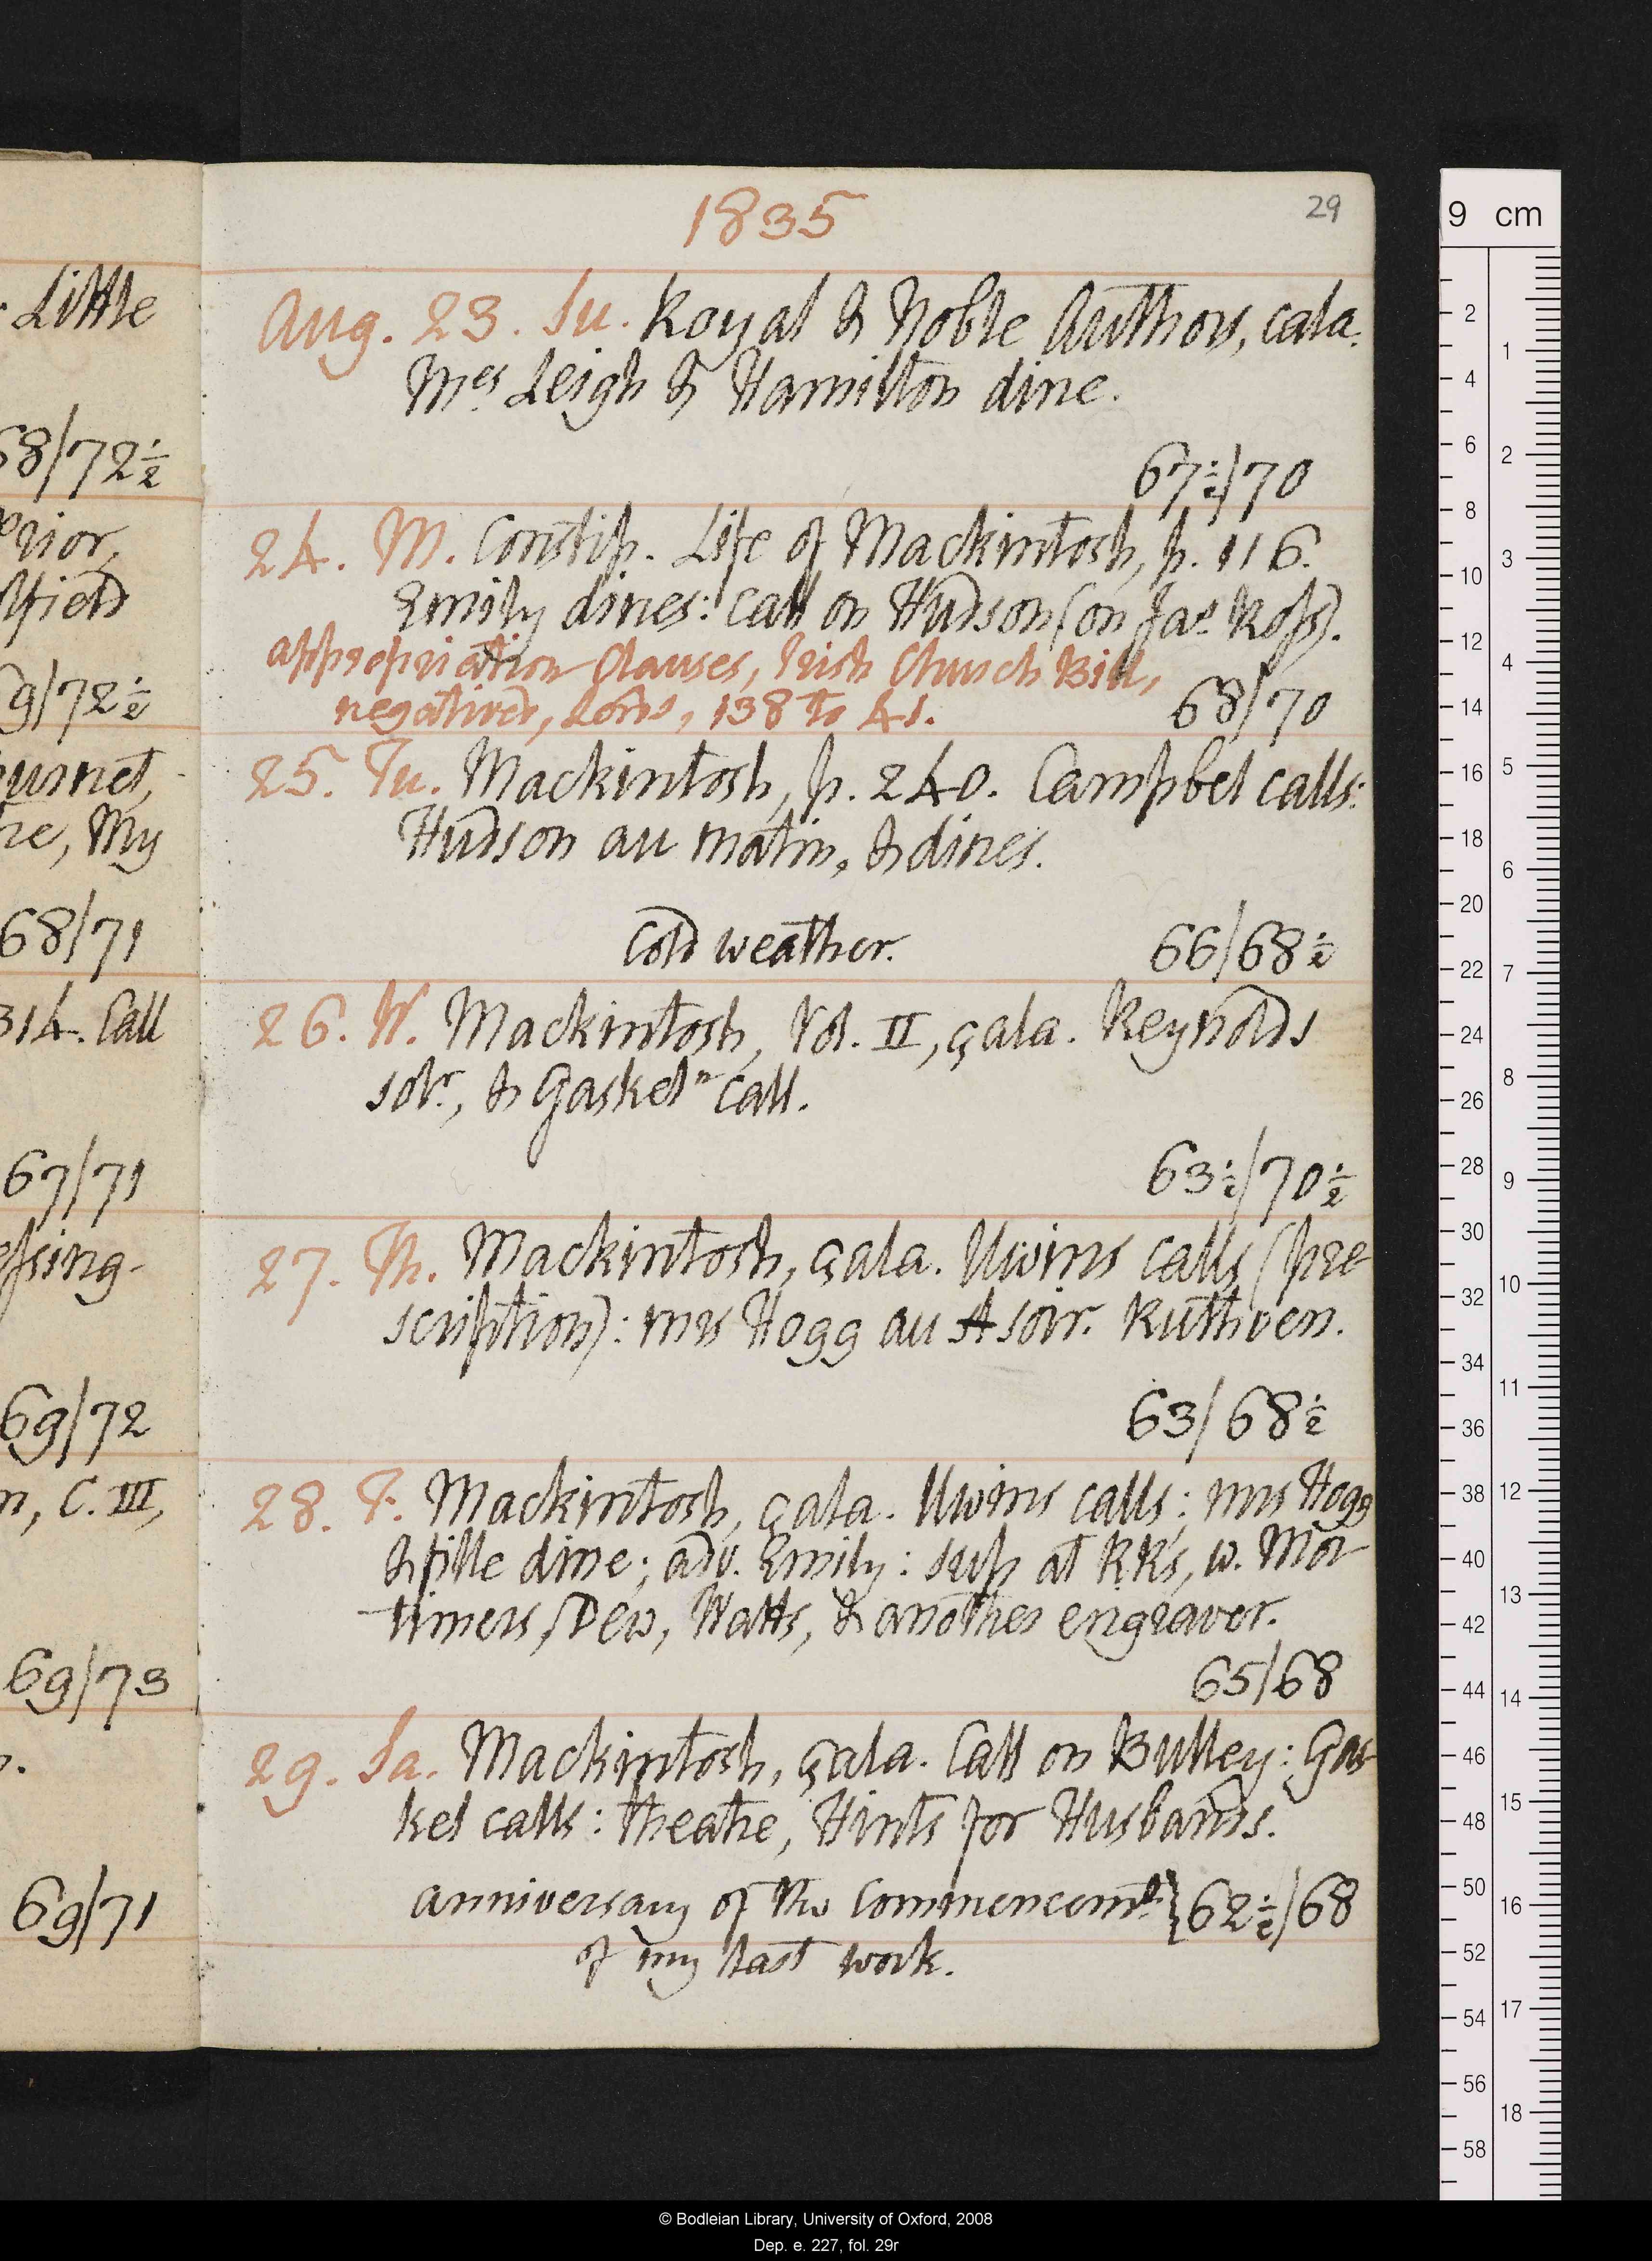 1835
29
Aug. 23. Su. Royal & Noble Authors, cala.
Mes Leigh & Hamilton dine.
67½/70
24. M. Constip. Life of Mackintosh, p. 116.
Emily dines: call on Hudson (on Jas Ross).
Appropriation Clauses, Irish Church Bill,
negatived, Lords, 138 to 41.
68/70
25. Tu. Mackintosh, p. 240. Campbel calls:
Hudson au matin, & dines.
Cold weather.
66/68½
26. W. Mackintosh, Vol. II, çala. Reynolds
solr., & Gaskeln call.
63½/70½
27. Th. Mackintosh, çala. Uwins calls (pre-
scription): mrs Hogg au soir. Ruthven.
63/68½
28. F. Mackintosh, çala. Uwins calls; mrs Hogg
& fille dine; adv. Emily: sup at RR's, w. Mor-
timers, Dew, Watts, & another engraver.
65/68
29. Sa. Mackintosh, çala. Call on Bulley: Gas-
kel calls: theatre, Hints for Husbands.
Anniversary of the Commencemt. } 62½/68
of my last work.
Little
68/72½
rior,
lfield
9/72½
urnet,
re, My
68/71
314. Call
67/71
ssing-
69/72
n, C. III,
69/73
69/71
9 cm
2
4
6
8
10
12
14
16
18
20
22
24
26
28
30
32
34
36
38
40
42
44
46
48
50
52
54
56
58
1
2
3
4
5
6
7
8
9
10
11
12
13
14
15
16
17
18
© Bodleian Library, University of Oxford, 2008
Dep. e. 227, fol. 29r